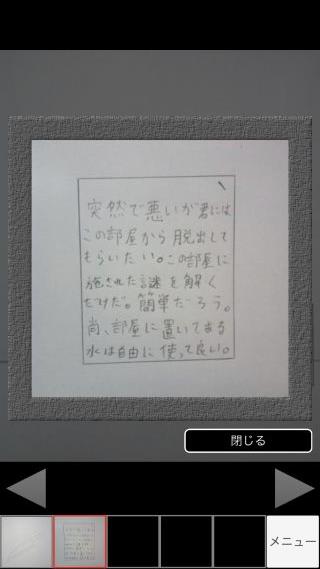 突然で悪いが君には
この部屋から脱出して
もらいたい。この部屋に
施された謎を解く
だけだ。簡単だろう。
尚、部屋に置いてある
水は自由に使って良い。
閉じる
メニュー